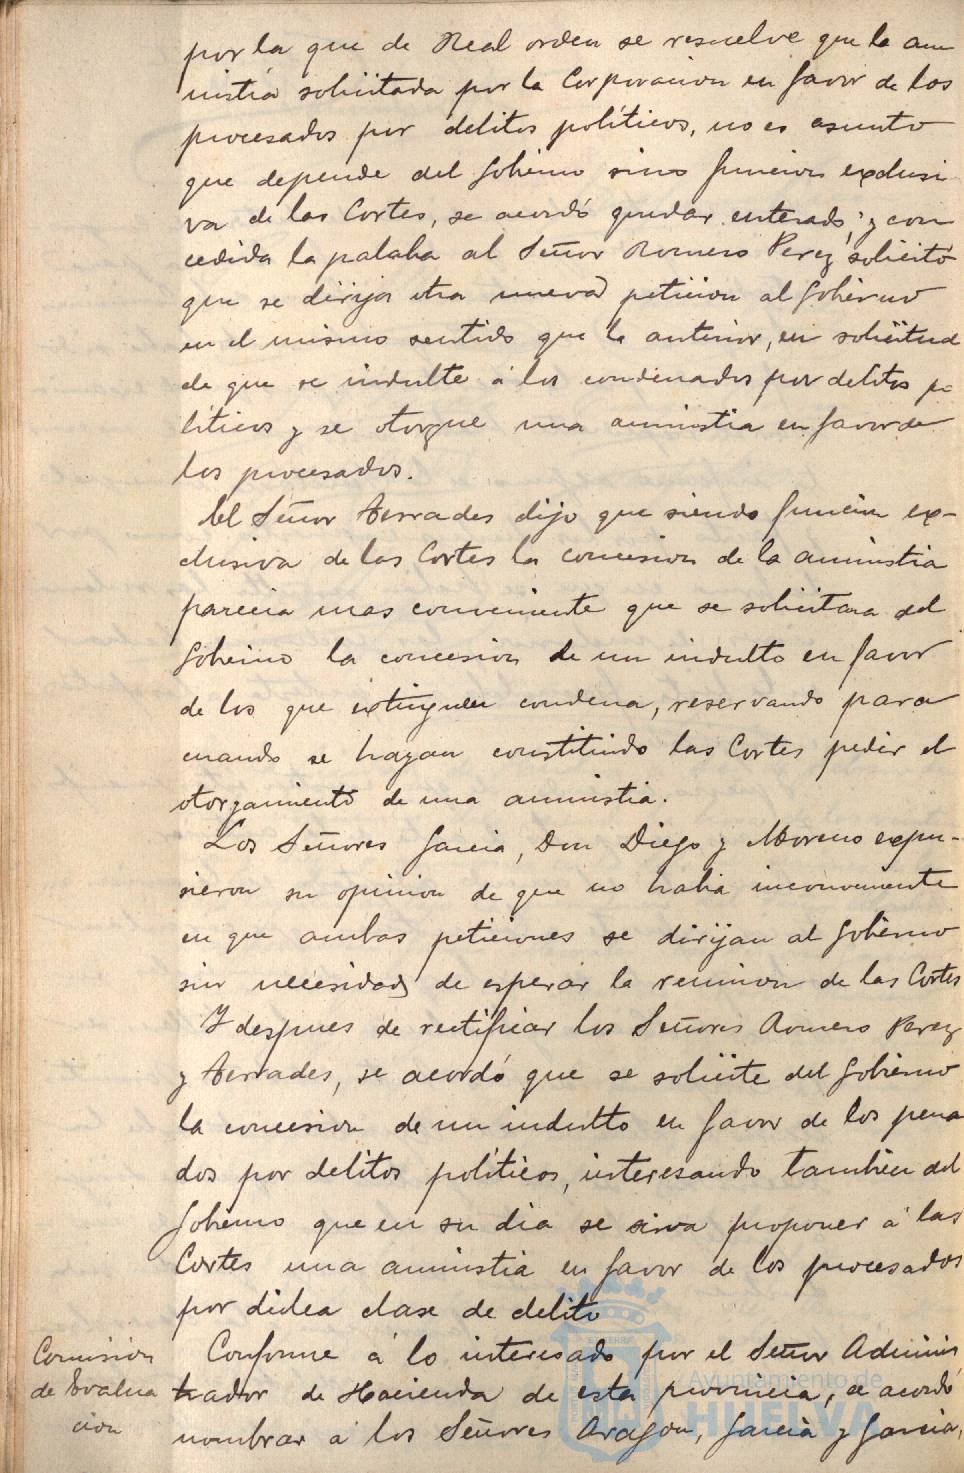 por la que de Real orden se resuelve que la am
nistia solicitada por la Corporacion en favor de los
procesados por delitos políticos, no es asunto
que depende del Gobierno sino funcion exclusi
va de las Cortes, se acordó quedar enterado; y con
cedida la palabra al Señor Romero Perez solicitó
que se dirija otra nueva peticion al Gobierno
en el mismo sentido que la anterior, en solicitud
de que se indulte á los condenados por delitos po
líticos y se otorgue una amnistia en favor de
los procesados.
El Señor Terrades dijo que siendo funcion ex-
clusiva de las Cortes la concesion de la amnistia
parecia mas conveniente que se solicitara del
Gobierno la concesion de un indulto en favor
de los que extinguen condena, reservando para
cuando se hayan constituido las Cortes pedir el
otorgamiento de una amnistia.
Los Señores Garcia, Don Diego y Moreno expu-
sieron su opinion de que no habia inconveniente
en que ambas peticiones se dirijan al Gobierno
sin necesidad de esperar la reunion de las Cortes
Y despues de rectificar los Señores Romero Perez
y Terrades, se acordó que se solicite del Gobierno
la concesion de un indulto en favor de los pena
dos por delitos políticos, interesando tambien del
Gobierno que en su dia se sirva proponer á las
Cortes una amnistia en favor de los procesados
por dicha clase de delito
Comision
de Evalua
cion
Conforme á lo interesado por el Señor Adminis
trador de Hacienda de esta provincia, se acordó
nombrar á los Señores Aragon, Garcia y Garcia,
Ayuntamiento de
HUELVA